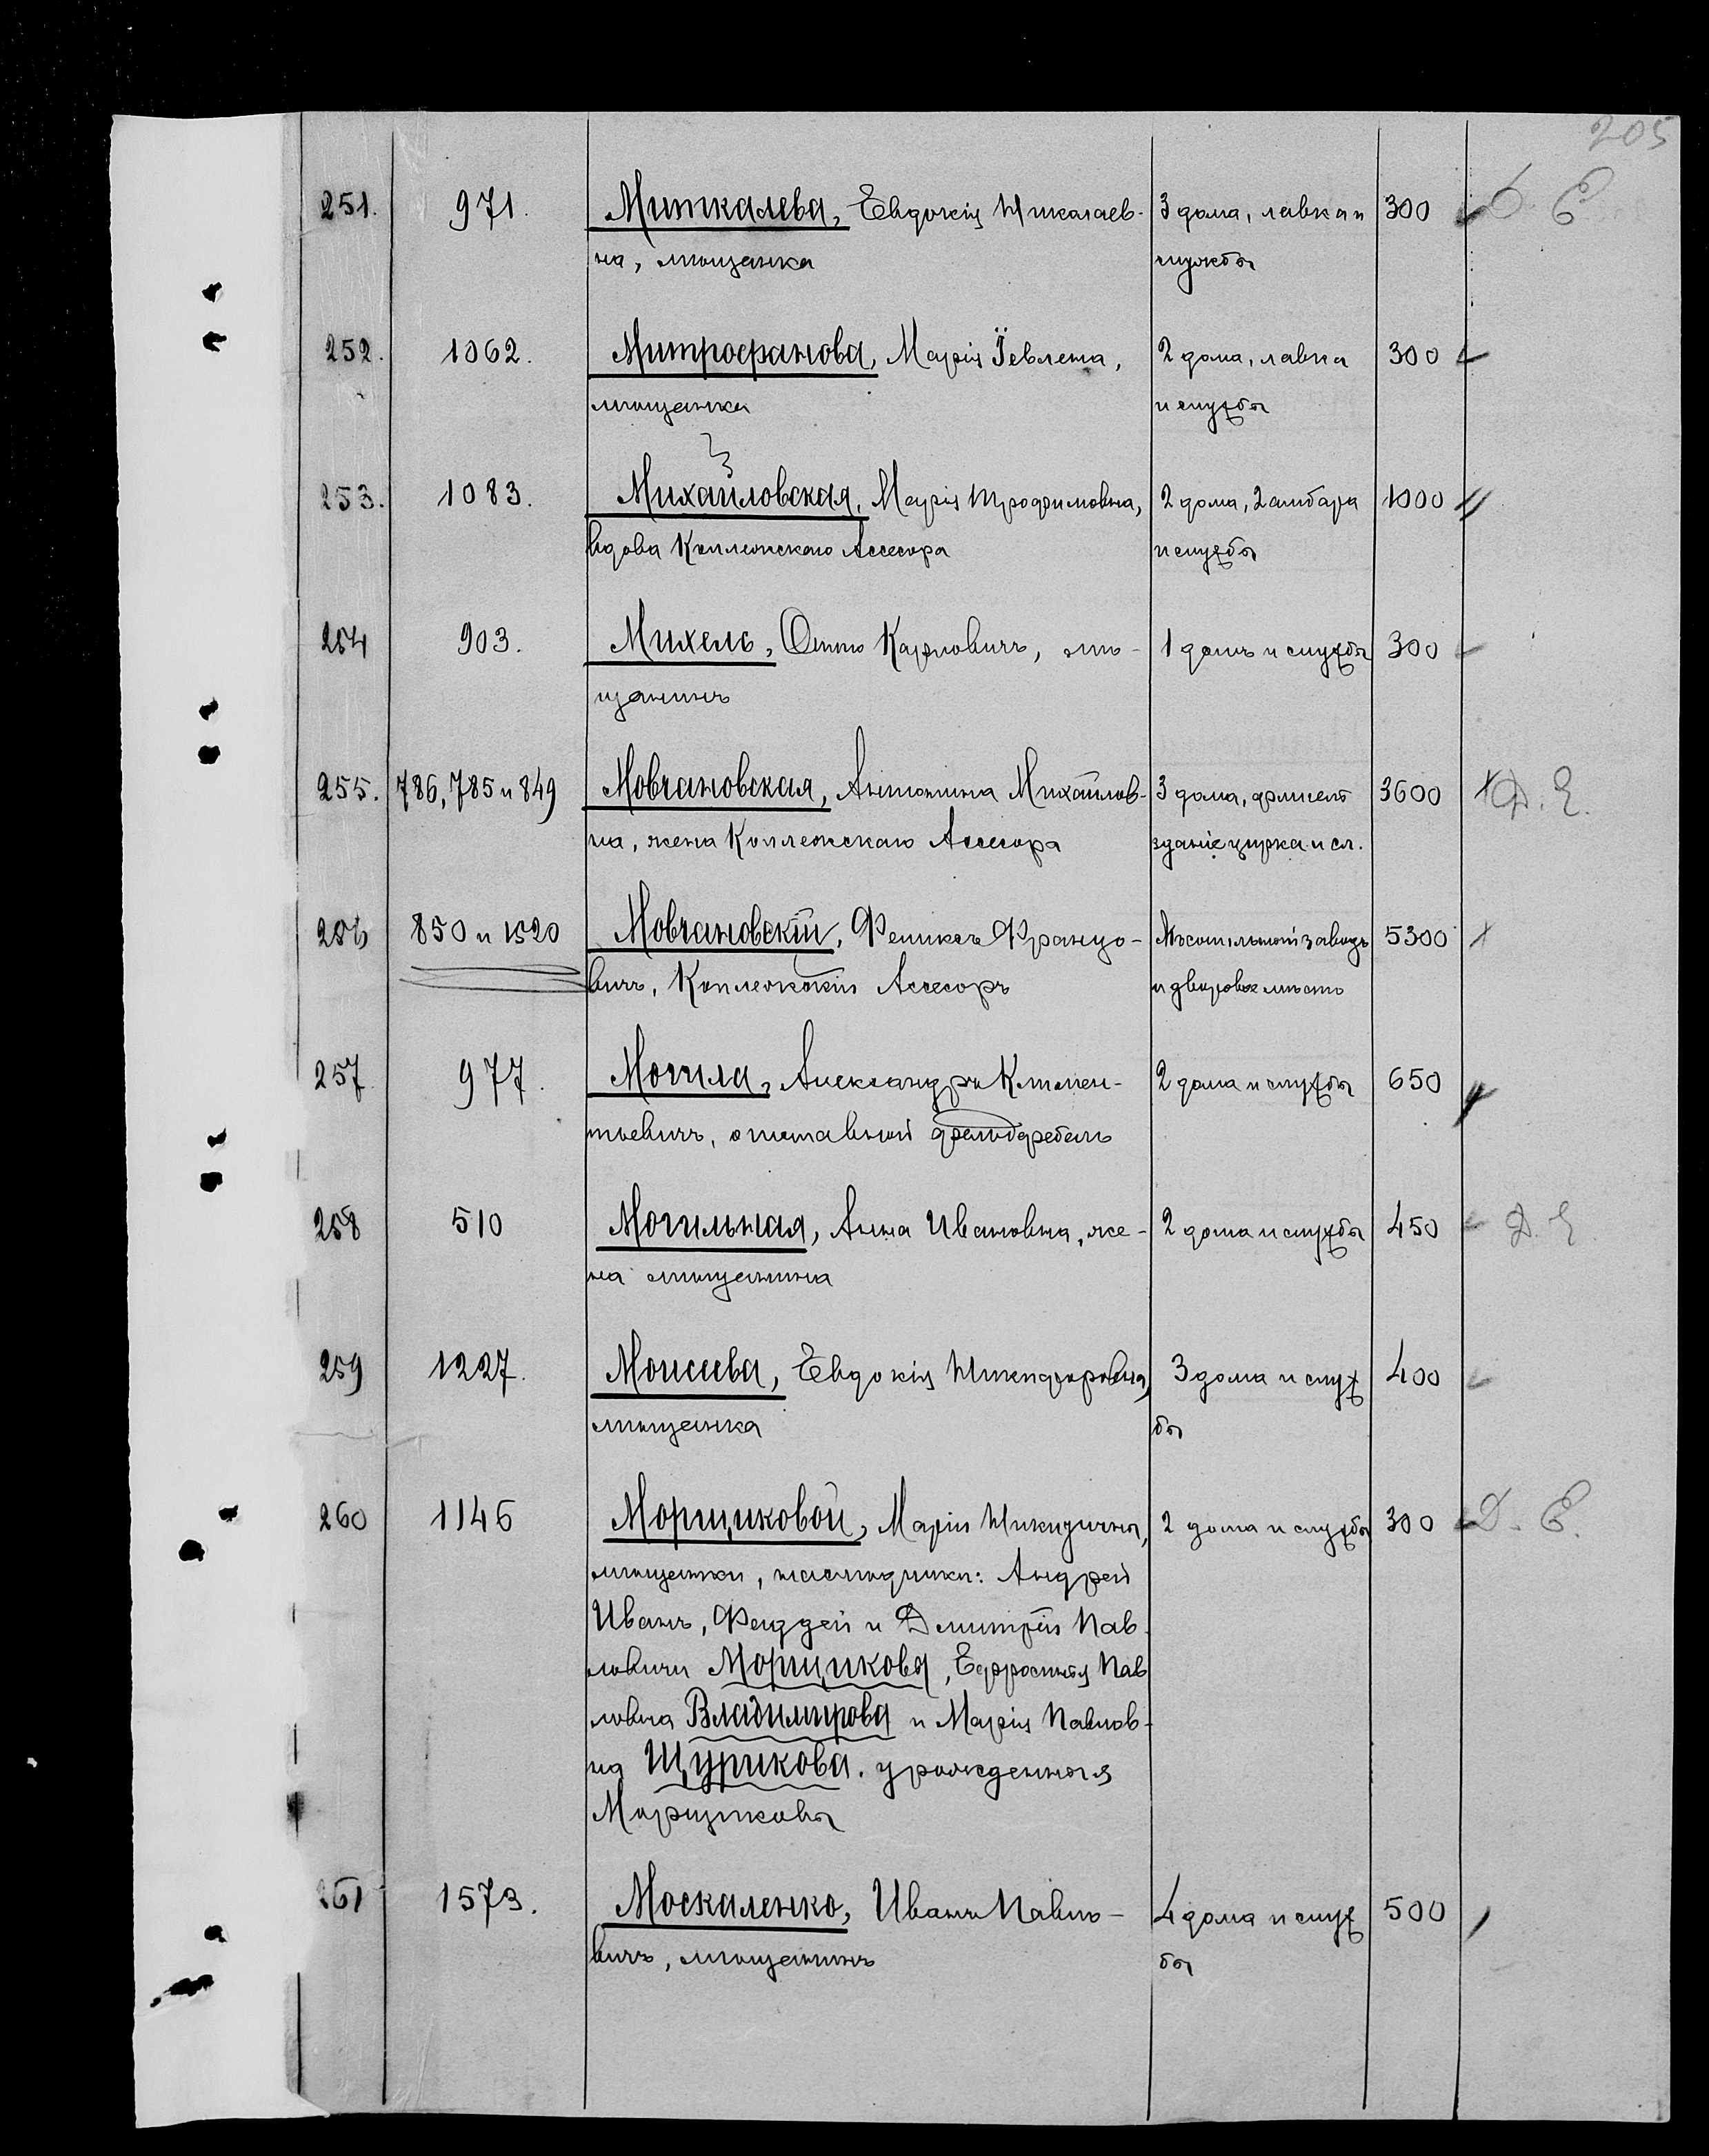 205
251. 971. Миткалева, Евдокія Николаев- 3 дома, лавка и 300
на, мѣщанка службы
252. 1062. Митрофанова, Марія Іевлева, 2 дома, лавка 300
мѣщанка и службы
253. 1083. Михайловская, Марія Трофимовна, 2 дома, 2 амбара 1000
вдова Коллежскаго Ассесора и службы
254 903. Михель, Отто Карловичъ, мѣ- 1 домъ и службы 300
щанинъ
255. 786, 785 и 849 Мовчановская, Антонина Михайлов- 3 дома, флигель 3600 Д. Е.
на, жена Коллежскаго Ассесора зданіе цирка и сл.
256 850 и 1520 Мовчановскій, Феликсъ Францо- заводъ 5300
вичъ, Коллежскій Ассесоръ и дворовое мѣсто
257 977. Могила, Александръ Климен- 2 дома и службы 650
тьевичъ, отставной фельдфебель
258 510 Могильная, Анна Ивановна, же- 2 дома и службы 450 Д. Е.
на мѣщанина
259 1227. Моисеева, Евдокія Никифоровна, 3 дома и служ 400
мѣщанка бы
260 1146 Морщиковой, Маріи Никидичны, 2 дома и службы 300 Д. Е.
мѣщанки, наслѣдники: Андрей
Иванъ, Фаддей и Димитрій Пав-
ловичи Морщиковы, Ефросинья Пав
ловна Владимирова и Марія Павлов-
на Щурикова. урожденныя
Морщиковы
261 1573. Москаленко, Иванъ Павло- 4 дома и служ 500
вичъ, мѣщанинъ бы